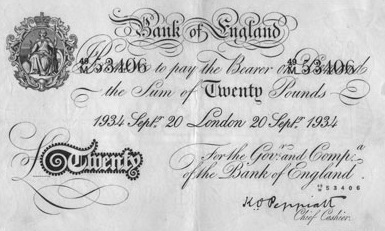 Bank of England
48/M 53406 Promise to pay the Bearer on Demand 48/M 53406
the Sum of Twenty Pounds
1934 Septr. 20 London 20 Septr. 1934
£ Twenty
For the Govr. and Compa.
of the Bank of England
48/M 53406
K. O. Peppiatt
Chief Cashier.